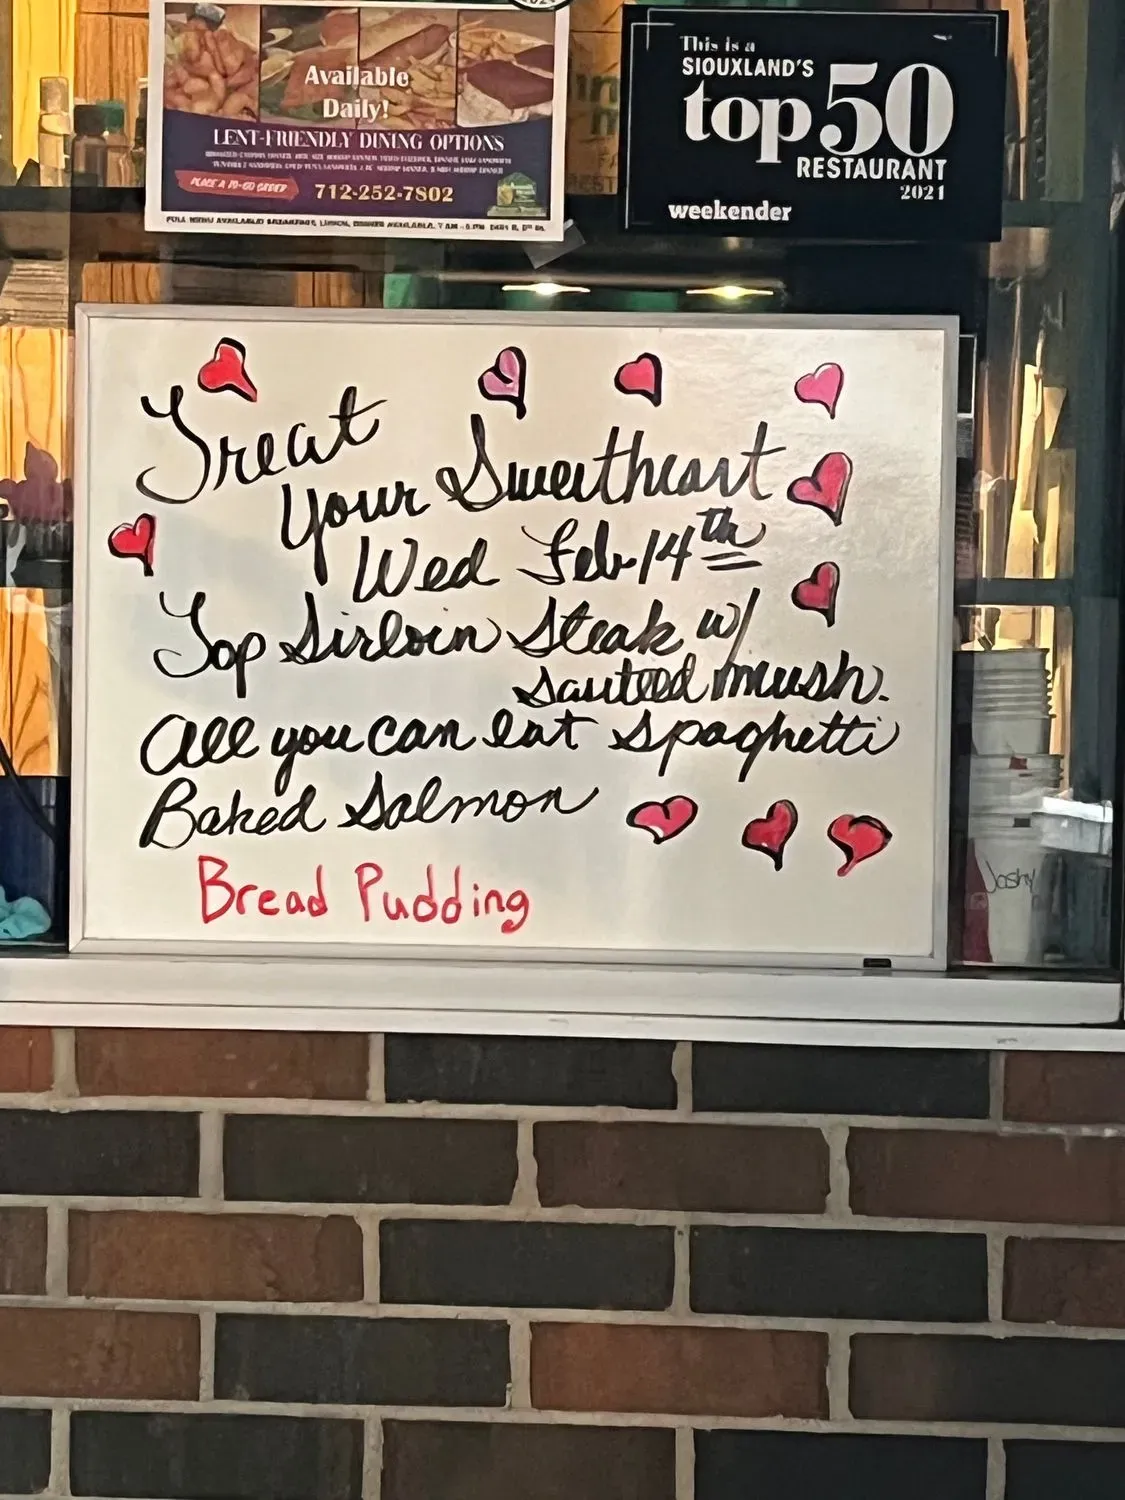 Available
Daily!
LENT-FRIENDLY DINING OPTIONS
PLACE A TO-GO ORDER
712-252-7802
This is a
SIOUXLAND'S
top 50
RESTAURANT
2021
weekender
Treat
Your Sweetheart
Wed Feb 14th
Top Sirloin Steak w/
Sauteed mush.
All you can eat Spaghetti
Baked Salmon
Bread Pudding
Joshy